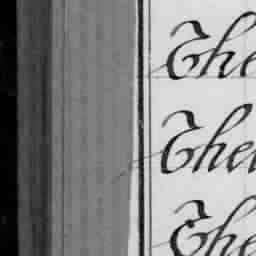 The
Thei
The